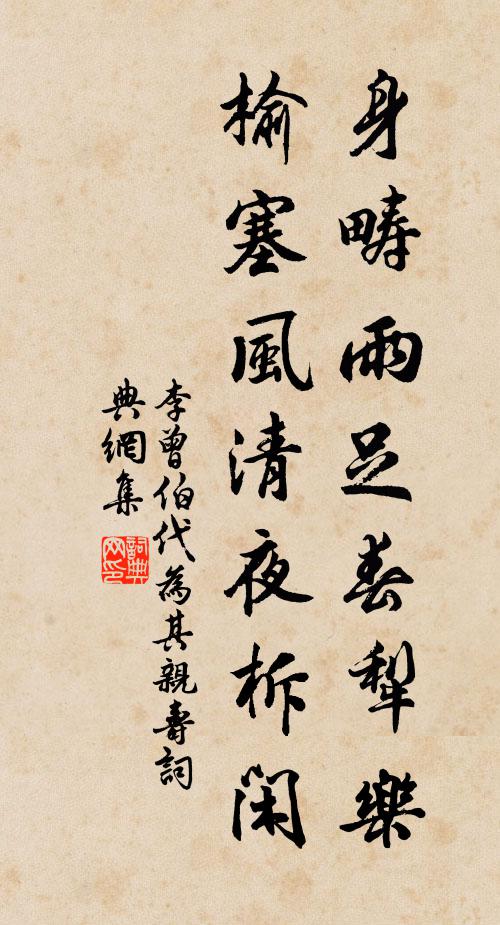 身疇雨足春犁樂
榆塞風清夜柝閑
李曾伯代為其親壽詞
典網集
詞典網印